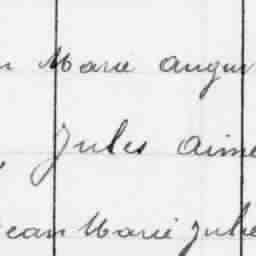 n Marie Augus
Jules Aimé
Jean Marie Jule